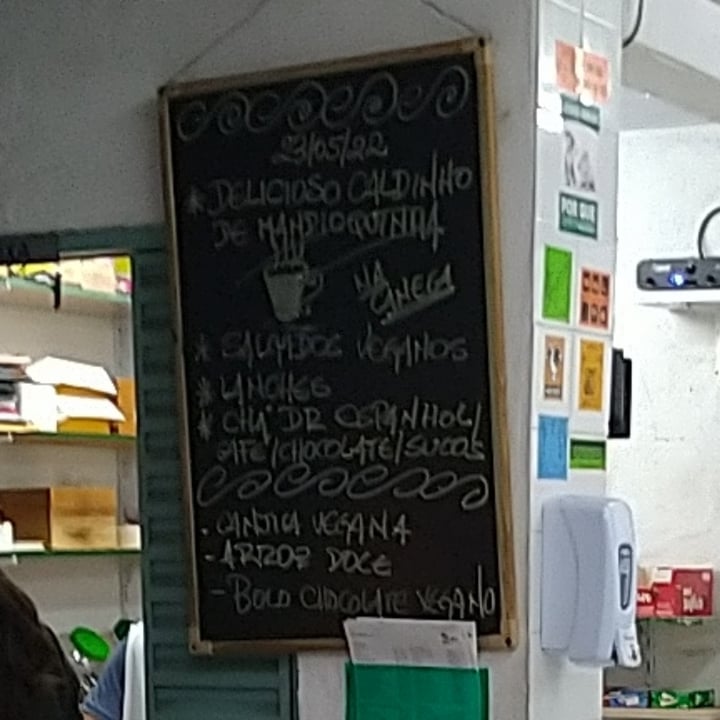 23/05/22
* DELICIOSO CALDINHO
DE MANDIOQUINHA
NA
CANECA
* SALGADOS VEGANOS
* LANCHES
* CHÁ DR ESPANHOL/
CAFÉ/CHOCOLATE/SUCOS
- CANJICA VEGANA
- ARROZ DOCE
- BOLO CHOCOLATE VEGANO
POR QUE